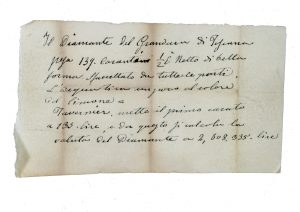 Il Diamante del Granduca di Toscana
pesa 139. Carantani 1/2 È Netto di bella
forma sfacettato da tutte le parti.
L'acqua tira un poco al colore
di limone =
Tavernier, mette il primo carato
a 135 lire, e da questo si calcola la
valuta del Diamante a 2,608,335. lire